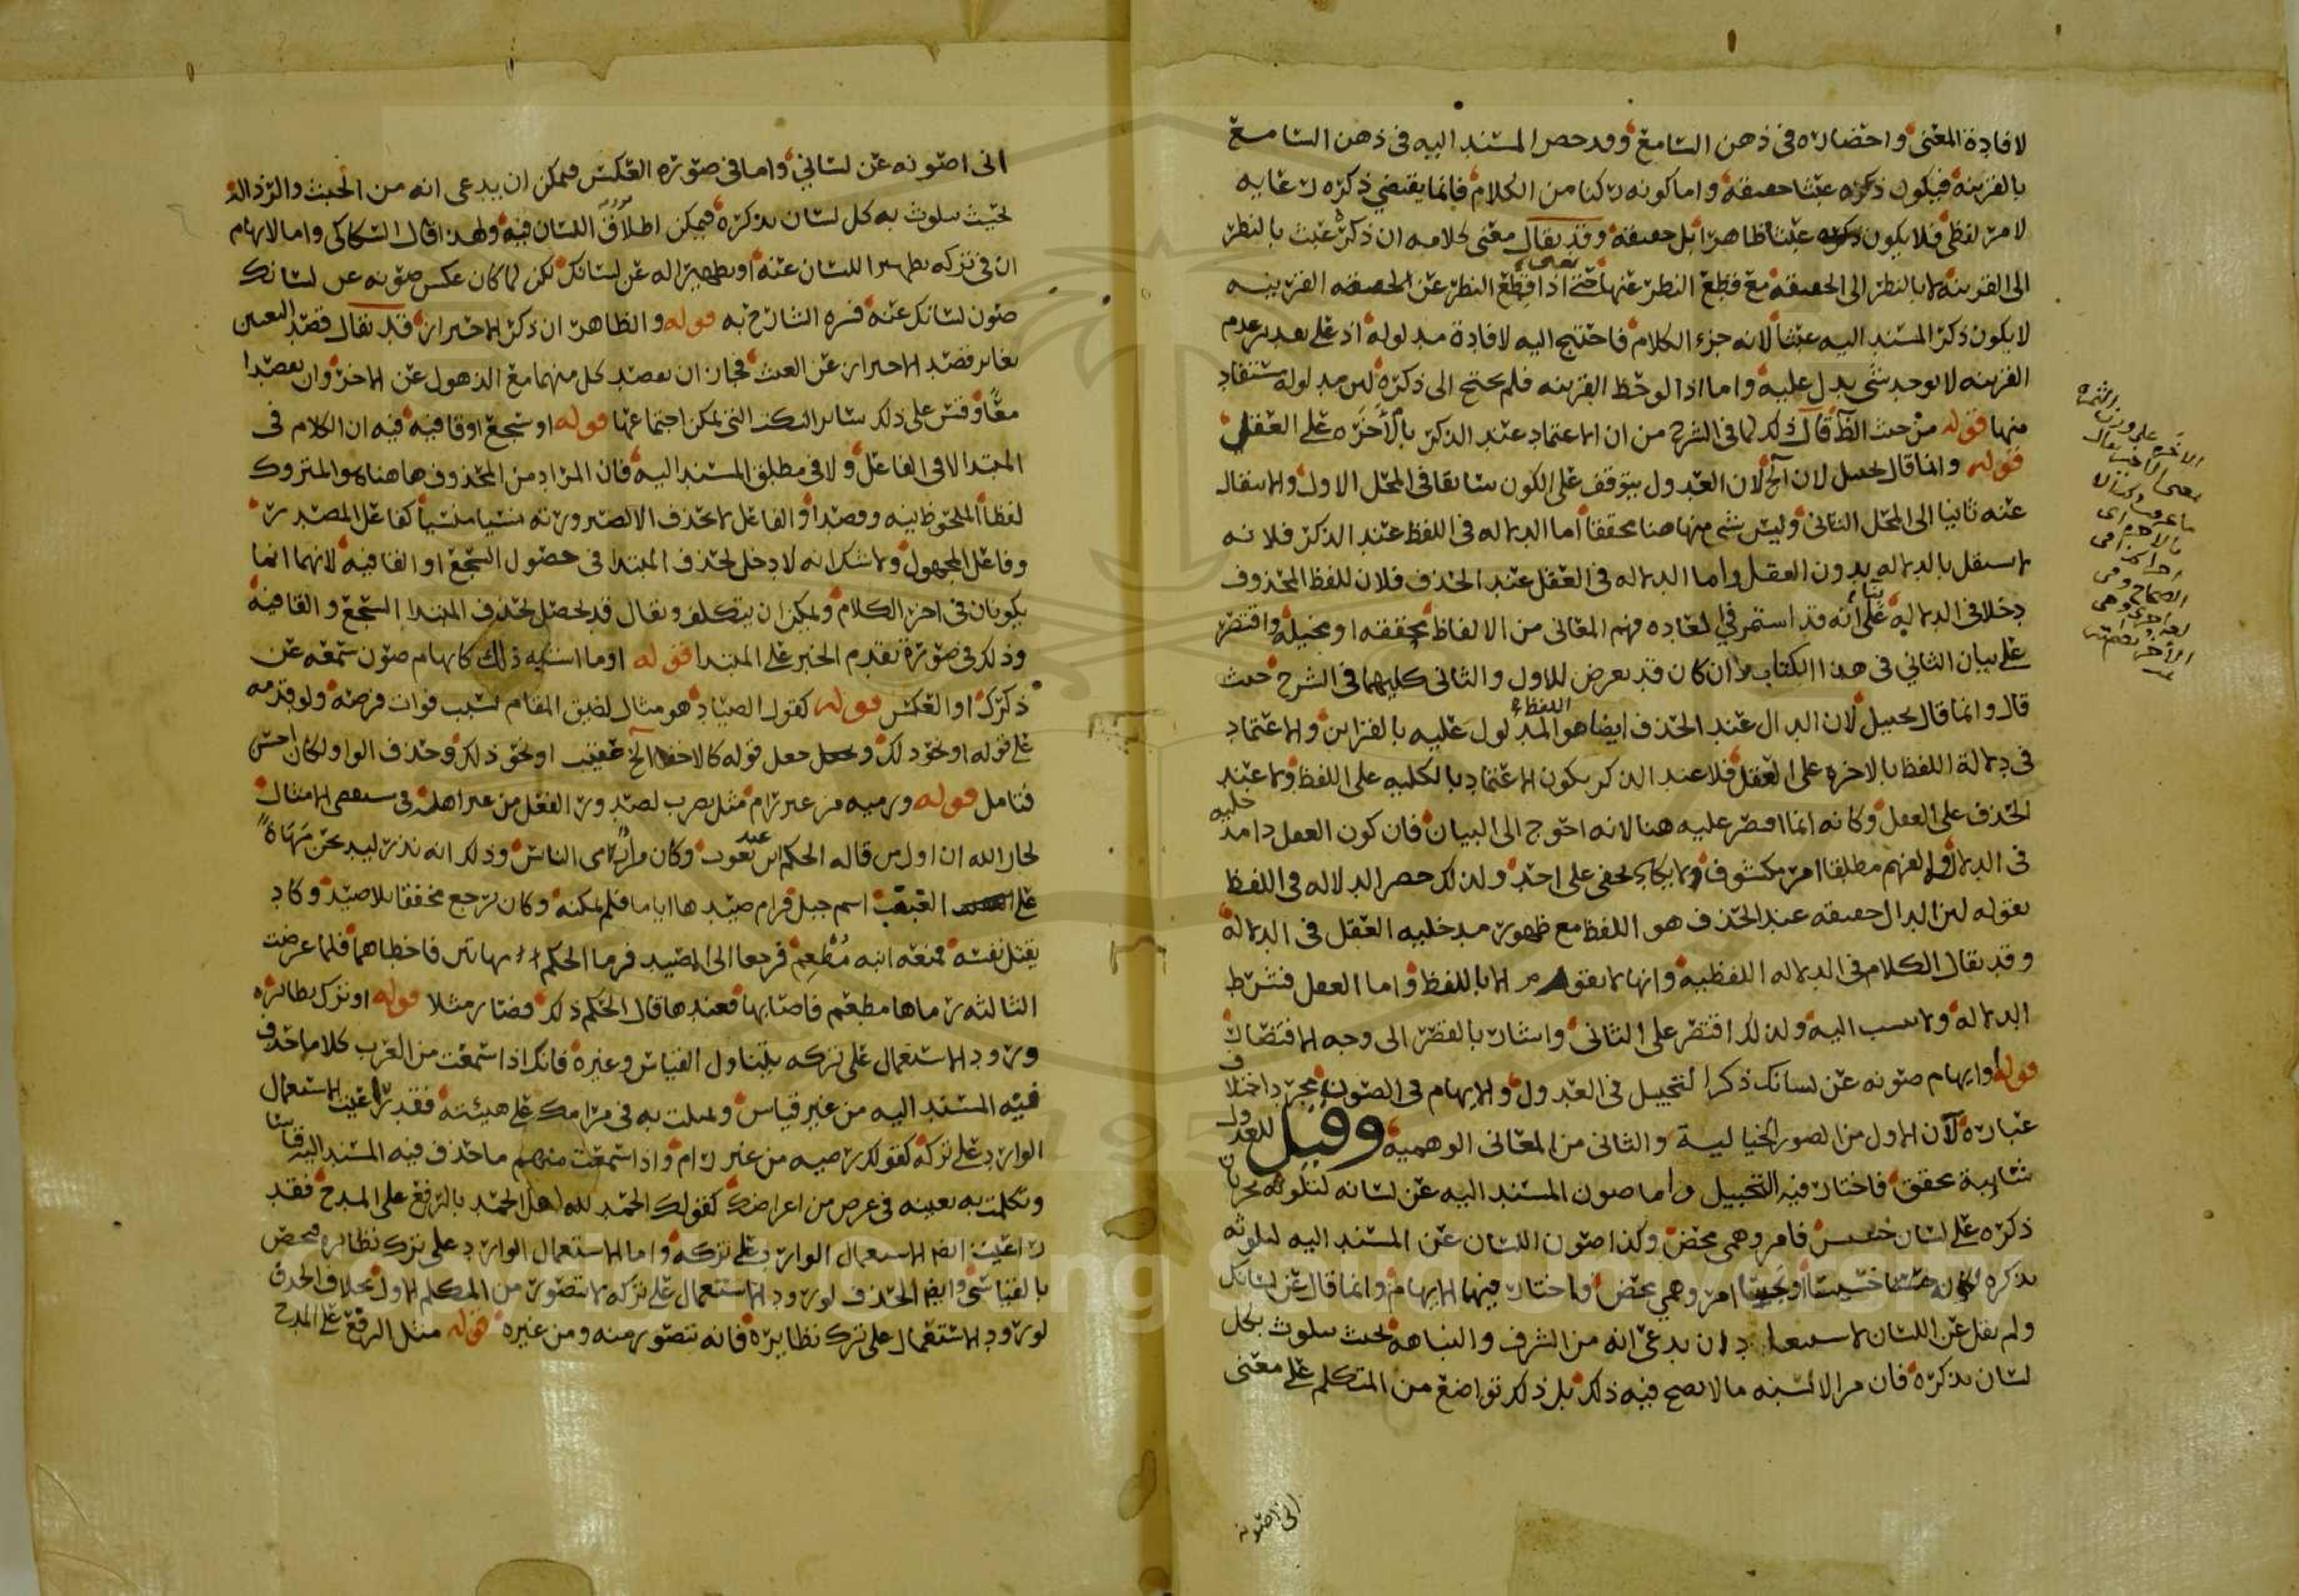 لافادة المعنى واحضاره فى ذهن السامع وقد حصر المسند اليه فى ذهن السامع
بالقرينة فيكون ذكره عبثا حقيقة واما كونه ركنا من الكلام فانما يقتضي ذكره رعايه
لامر لفظى فلا يكون ذكره عبثا ظاهرا بل حقيقة وقد يقال معنى كلامه ان ذكره عبث بالنظر
الى القرينة لا بالنظر الى الحقيقة مع قطع النظر عنها حتى اذا قطع النظر عن الحقيقه القرينيه
لا يكون ذكر المسند اليه عبثا لانه جزء الكلام فاحتيج اليه لافادة مدلوله اذ على تقدير عدم
القرينه لا يوجد شى يدل عليه واما اذا لوحظ القرينه فلم يحتج الى ذكره لان مدلوله مستفاد
منها قوله من حيث الظ قال ذلك لما فى الشرح من ان الاعتماد عند الذكر بالأخرة على العقل
قوله وانما قال تخييل لان الخ لان العدول يتوقف على الكون سابقا فى المحل الاول والانتقال
عنه ثانيا الى المحل الثانى وليس شى منها هنا محققا أما الدلاله فى اللفظ عند الذكر فلانه
لا يستقل بالدلاله بدون العقل واما الدلاله فى العقل عند الحذف فلان للفظ المحذوف
دخلا فى الدلالة بناء على أنه قد استمر في العاده فهم المعانى من الالفاظ محققه او مخيلة واقتصر
على بيان الثاني فى هذا الكتاب وان كان قد تعرض للاول والثانى كليهما فى الشرح حيث
قال وانما قال تخييل لان الدال عند الحذف ايضا هو اللفظ المدلول عليه بالقراين والاعتماد
فى دلالة اللفظ بالاخرة على العقل فلا عند الذكر يكون الاعتماد بالكليه على اللفظ ولا عند
الحذف على العقل وكانه انما اقتصر عليه هنا لانه احوج الى البيان فان كون العقل ذا مدخليه
فى الدلالة والفهم مطلقا امر مكشوف ولا يكاد يخفى على احد ولذلك حصر الدلاله فى اللفظ
بقوله لان الدال حقيقه عند الحذف هو اللفظ مع ظهور مدخليه العقل فى الدلالة
وقد يقال الكلام فى الدلاله اللفظية وانها لا تقوم الا باللفظ واما العقل فشرط
الدلاله ولا ينسب اليه ولذلك اقتصر على الثانى واشار بالقصر الى وجه الاقتصار
قوله او ايهام صونه عن لسانك ذكر التخييل فى العدول والايهام فى الصون مجرد اختلاف
عبارة لان الاول من الصور الخياليه والثانى من المعانى الوهمية وقيل للعدول
شايبة تحقق فاختار فيه التخييل واما صون المسند اليه عن لسانه لتلوثه بجريان
ذكره على لسان خسيس فامر وهمى محض وكذا صون اللسان عن المسند اليه لتلوثه
بذكره لكونه خسيسا او نجسا امر وهمي محض واختار فيهما الايهام وانما قال عن لسانك
ولم يقل عن اللسان لاستبعاد ان يدعى انه من الشرف والنباهة بحيث يتلوث بكل
لسان يذكره فان من الالسنه مالا يصح فيه ذلك بل ذلك تواضع من المتكلم على معنى
انى اصونه
الاخرة على وزن الثمرة
انى اصونه عن لساني واما فى صورة العكس فيمكن ان يدعى انه من الخبث والرذالة
بحيث يتلوث به كل لسان يذكره فيمكن اطلاق اللسان فيه ولهذا قال السكاكى واما لايهام
ان فى تركه تطهيرا للسان عنه او تطهيرا له عن لسانك لكن لما كان عكس صونه عن لسانك
صون لسانك عنه فسره الشارح به قوله والظاهر ان ذكر الاحتراز قد يقال قصد التعين
يغاير قصد الاحتراز عن العبث فجاز ان يقصد كل منهما مع الذهول عن الاخر وان يقصدا
معًا وقس على ذلك سائر النكت التى يمكن اجتماعها قوله او سجع او قافية فيه ان الكلام فى
المبتدا لا فى الفاعل ولا فى مطلق المسند اليه فان المراد من المحذوف هاهنا هو المتروك
لفظا الملحوظ نية وقصدا والفاعل لا يحذف الا لصيرورته نسيا منسيا كفاعل المصدر
وفاعل المجهول ولا شك انه لا دخل لحذف المبتدا فى حصول السجع او القافية لانهما انما
يكونان فى اخر الكلام ويمكن ان يتكلف ويقال قد يحصل بحذف المبتدا السجع والقافية
وذلك فى صورة تقدم الخبر على المبتدا قوله او ما اشبه ذلك كايهام صون سمعه عن
ذكرك او العكس قوله كقول الصياد هو مثال لضيق المقام لسبب فوات فرصة ولو قدمه
على قوله او نحو ذلك وجعل قوله كالاخفا الخ عقيب او نحو ذلك وحذف الواو لكان احسن
فتامل قوله ورميه من غير رام مثل يضرب لصدور الفعل من غير اهله فى
لجار الله ان اول من قاله الحكم ابن عبد يغوث وكان من ارمى الناس وذلك انه نذر ليذبحن مهاة
على الغبغب اسم جبل فرام صيدها اياما فلم يمكنه وكان يرجع مخفقا بلا صيد وكاد
يقتل نفسه فمنعه ابنه مُطْعِم فرجعا الى الصيد فرما الحكم مهاتين فاخطاهما فلما عرضت
الثالثه رماها مطعم فاصابها فعندها قال الحكم ذلك فصار مثلا قوله او ترك نظائره
ورود الاستعمال على تركه يتناول القياس وغيره فانك اذا سمعت من العرب كلاما حذف
فيه المسند اليه من غير قياس وتمثلت به فى مرامك على هيئته فقد راعيت الاستعمال
الوارد على تركه كقولك رميه من غير رام واذا سمعت منهم ما حذف فيه المسند اليه قياسا
وتكلمت به بعينه فى غرض من اغراضك كقولك الحمد لله اهل الحمد بالرفع على المدح فقد
راعيت ايضا الاستعمال الوارد على تركه واما الاستعمال الوارد على ترك نظائره فمحض
بالقياسى وايضا الحذف لورود الاستعمال على تركه لا يتصور من المتكلم الاول بخلاف الحذف
لورود الاستعمال على ترك نظايره فانه يتصور منه ومن غيره قوله مثل الرفع على المدح